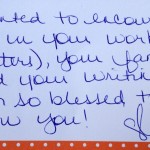 nted to encou
in your work
ters), your fam
d your writin
so blessed t
w you!